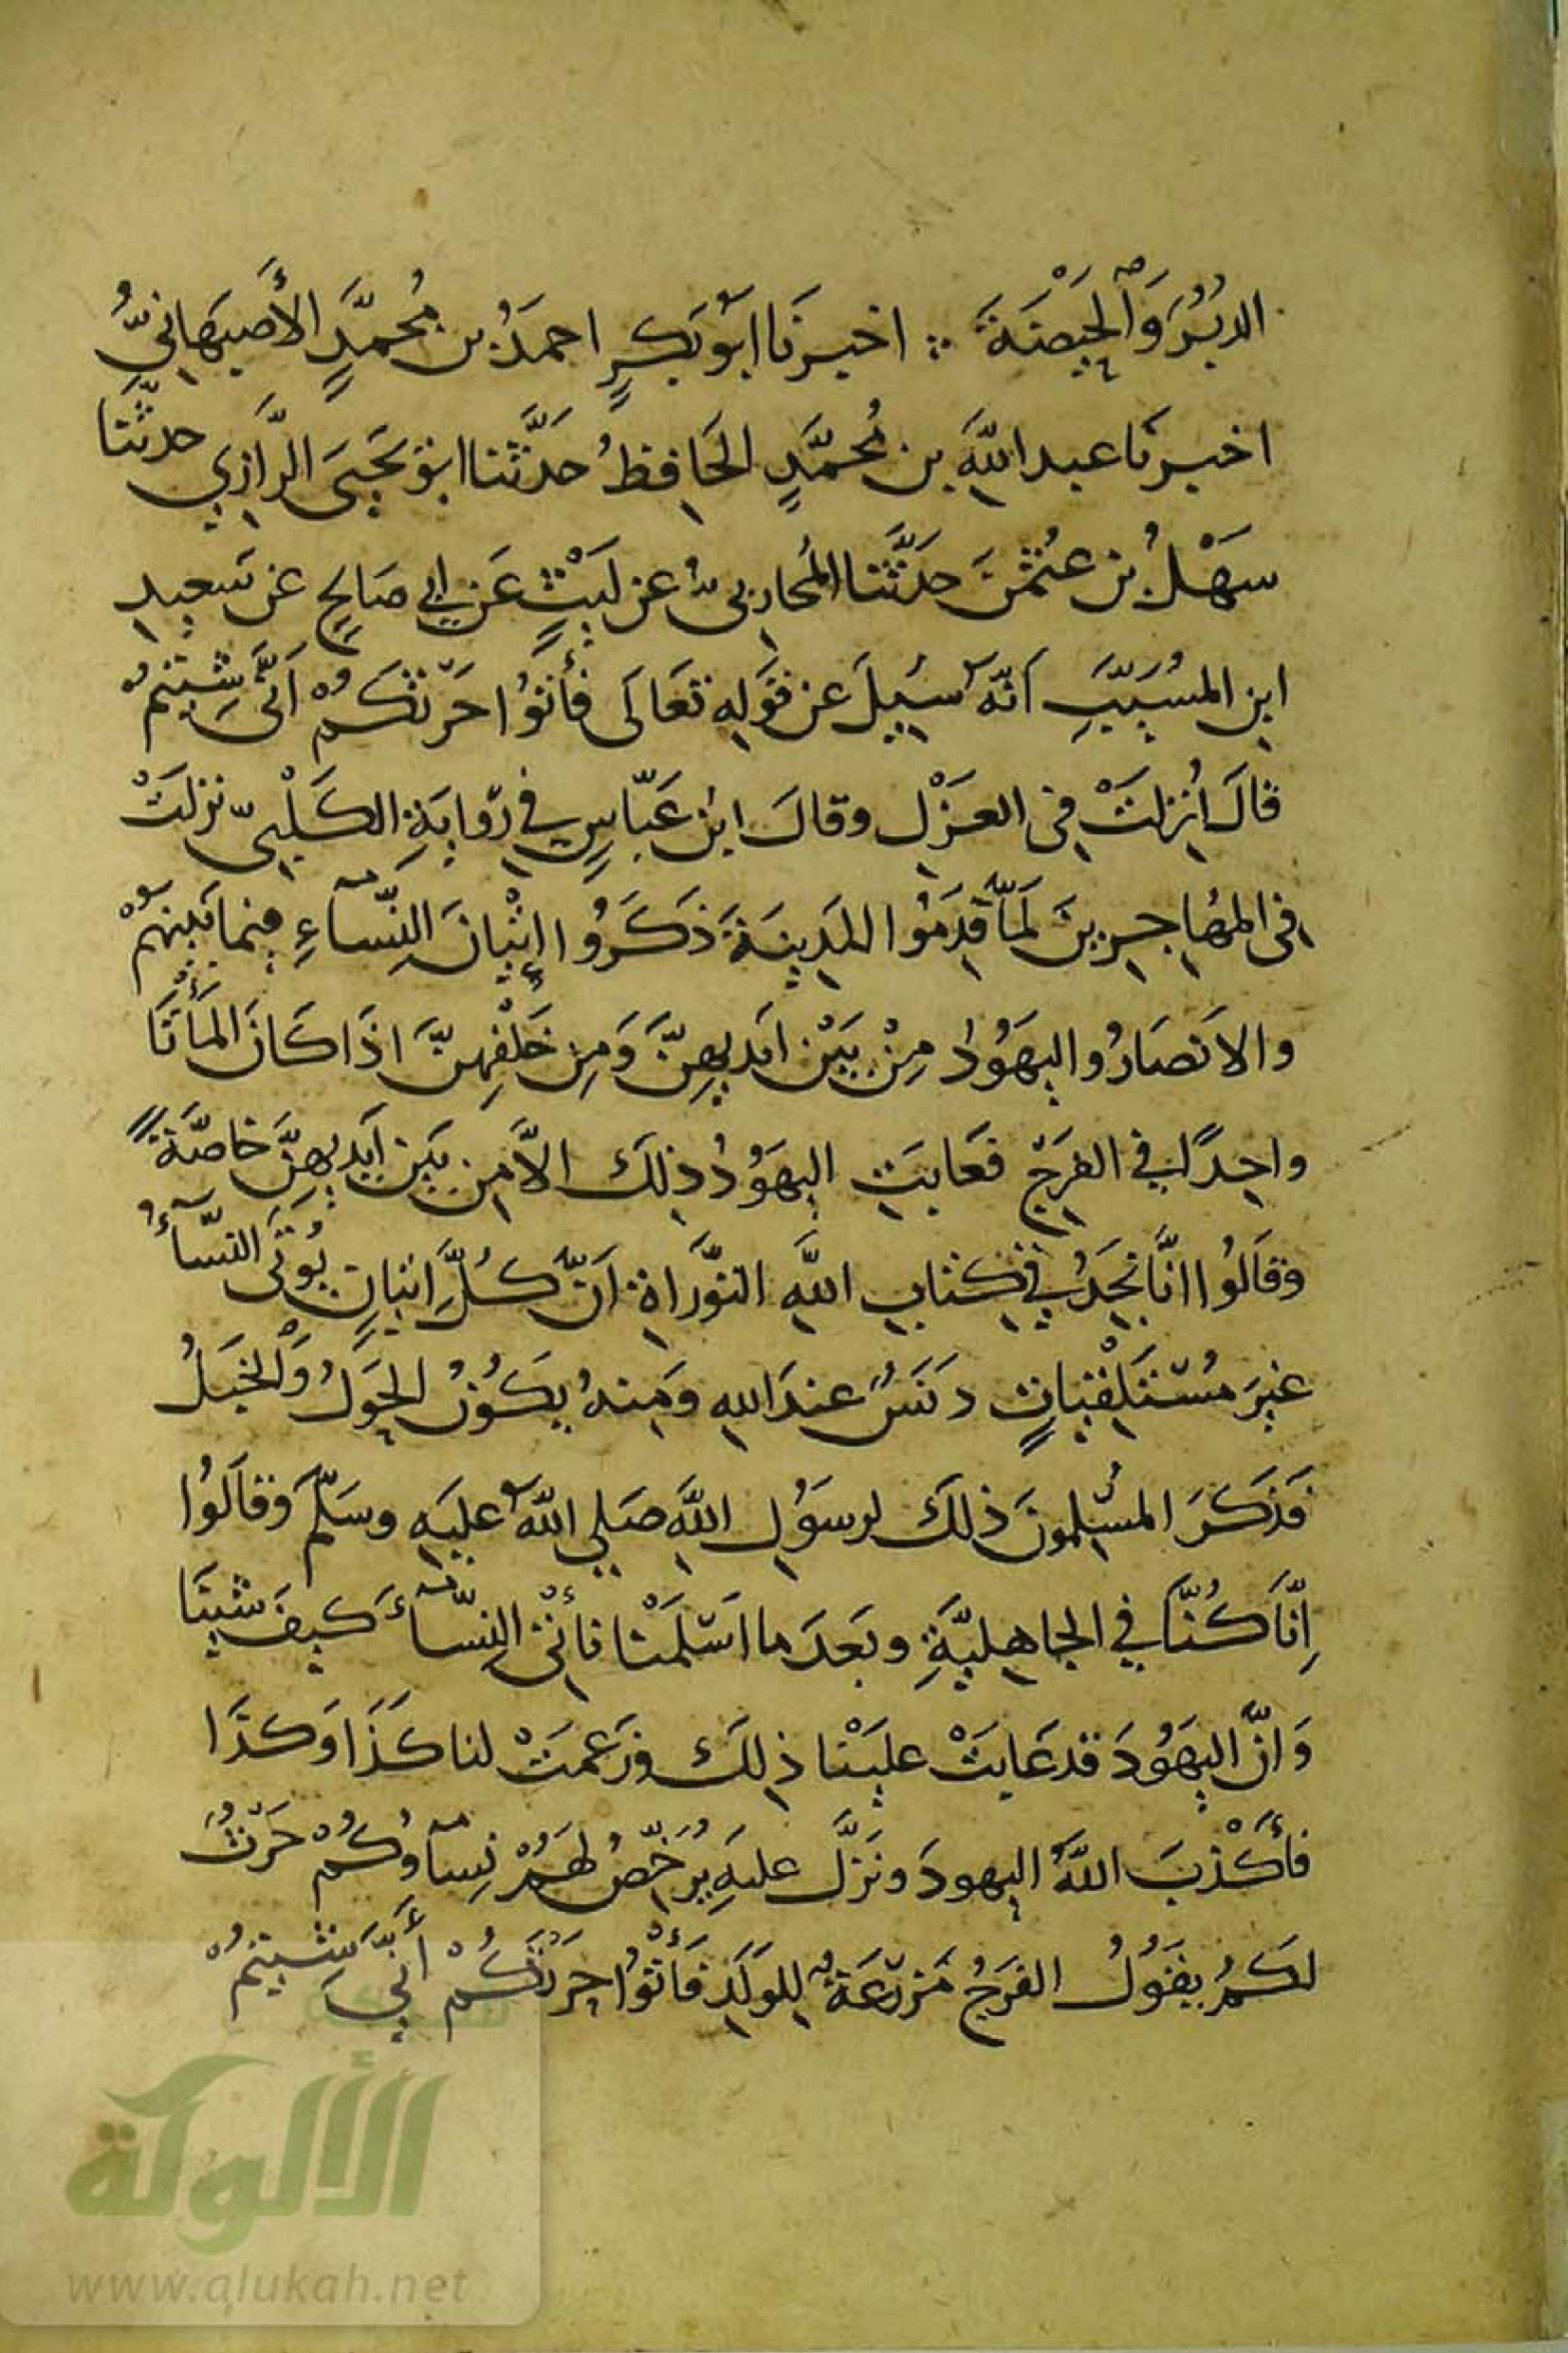 الدُّبُرَ وَالحَيْضَةَ ∴ اخبرنا ابو بَكرٍ احمدُ بن مُحمّدٍ الأصبهانيُّ
اخبرنا عبد اللّهِ بن مُحمّدٍ الحَافِظُ حدّثنا ابو يَحيَى الرّازي حدّثنا
سَهْلُ بن عُثمٰنَ حدّثنا المُحاربيُّ عن لَيْثٍ عَن ابي صَالحٍ عن سَعيدِ
ابن المسُيَّبِ اَنّهُ سُيِلَ عن قَولِهِ تعَالَى فأتوُا حَرْثَكُمْ اَنَّى شِيتمُ
قالَ اُنزلتْ في العَزْلِ وقالَ ابنُ عَبّاسٍ في رِوايَةِ الكَلْبيّ نزلتْ
في المهُاجِرينَ لَمّا قدِمَوُا المَدِينَةَ ذَكَرُوا إتْيانَ النِّسَآءِ فيمَا بَينهُمْ
والاَنصَارُ واليهَوُدُ مِنْ بَيْنِ اَيديهِنَّ وَمِن خَلْفِهِنَّ اذَا كَانَ المَأتَا
واحِدًا في الفَرجِ فعَابَتِ اليهَوُدُ ذلِكَ الاّ مِن بَينِ اَيديهِنَّ خاصّةً
وقَالُوا انّا نجَدُ في كتابِ اللّهِ التّوراةِ اَنّ كُلَّ اتيانٍ يُؤتَى النسّآءُ
غيرَ مُسْتَلْقياتٍ دَنَسٌ عندَ اللهِ ومِنهُ يكَوُنُ الحَوَلُ وَالخَبَلُ
فَذَكَرَ المسُلِمونَ ذلكَ لرسَوُلِ اللّهِ صَلى اللّهُ عليَهِ وسَلّمَ وقالَوُا
اِنّا كُنّا في الجاهِليَّةِ وبَعدَ ما اَسْلَمْنا نأتي النِسّآءَ كَيفَ شيِنَا
وَانّ اليهَوُدَ قد عَابتْ عليَنْا ذلِكَ وزَعَمتْ لنا كذَا وَكذَا
فأكْذبَ اللّهُ اليهودَ ونَزَّلَ عليَهِ يُرَخّصُ لهَمُ نِسآوكُمْ حَرْثٌ
لكَمُ يقَوُلُ الفَرَجُ مَزرَعَةُ للِوَلَدِ فَأتوُا حَرْثكُمْ أنّي شِيتمُ
شبكة
الألوكة
www.alukah.net